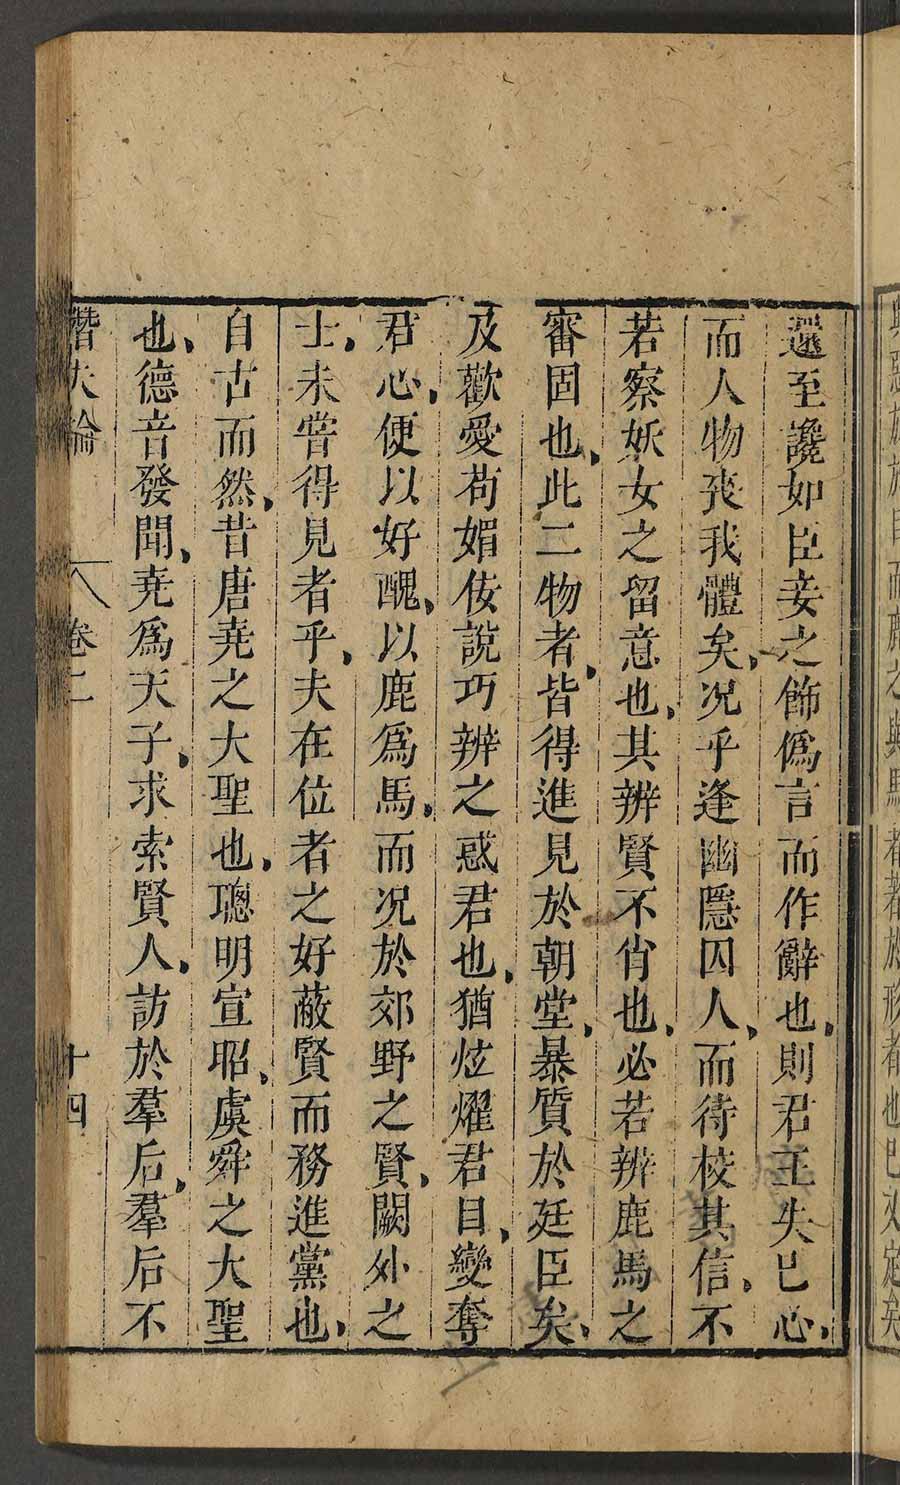 還至讒如臣妾之飾僞言而作辭也則君王失己心
而人物喪我體矣况乎逢幽隱囚人而待校其信不
若察妖女之留意也其辨賢不肖也必若辨鹿馬之
審固也此二物者皆得進見於朝堂暴質於廷臣矣
及歡愛苟媚佞說巧辨之惑君也猶炫燿君目變奪
君心便以好醜以鹿爲馬而况於郊野之賢闕外之
士未嘗得見者乎夫在位者之好蔽賢而務進黨也
自古而然昔唐堯之大聖也聰明宣昭虞舜之大聖
也德音發聞堯爲天子求索賢人訪於羣后羣后不
潛夫論 卷二 十四